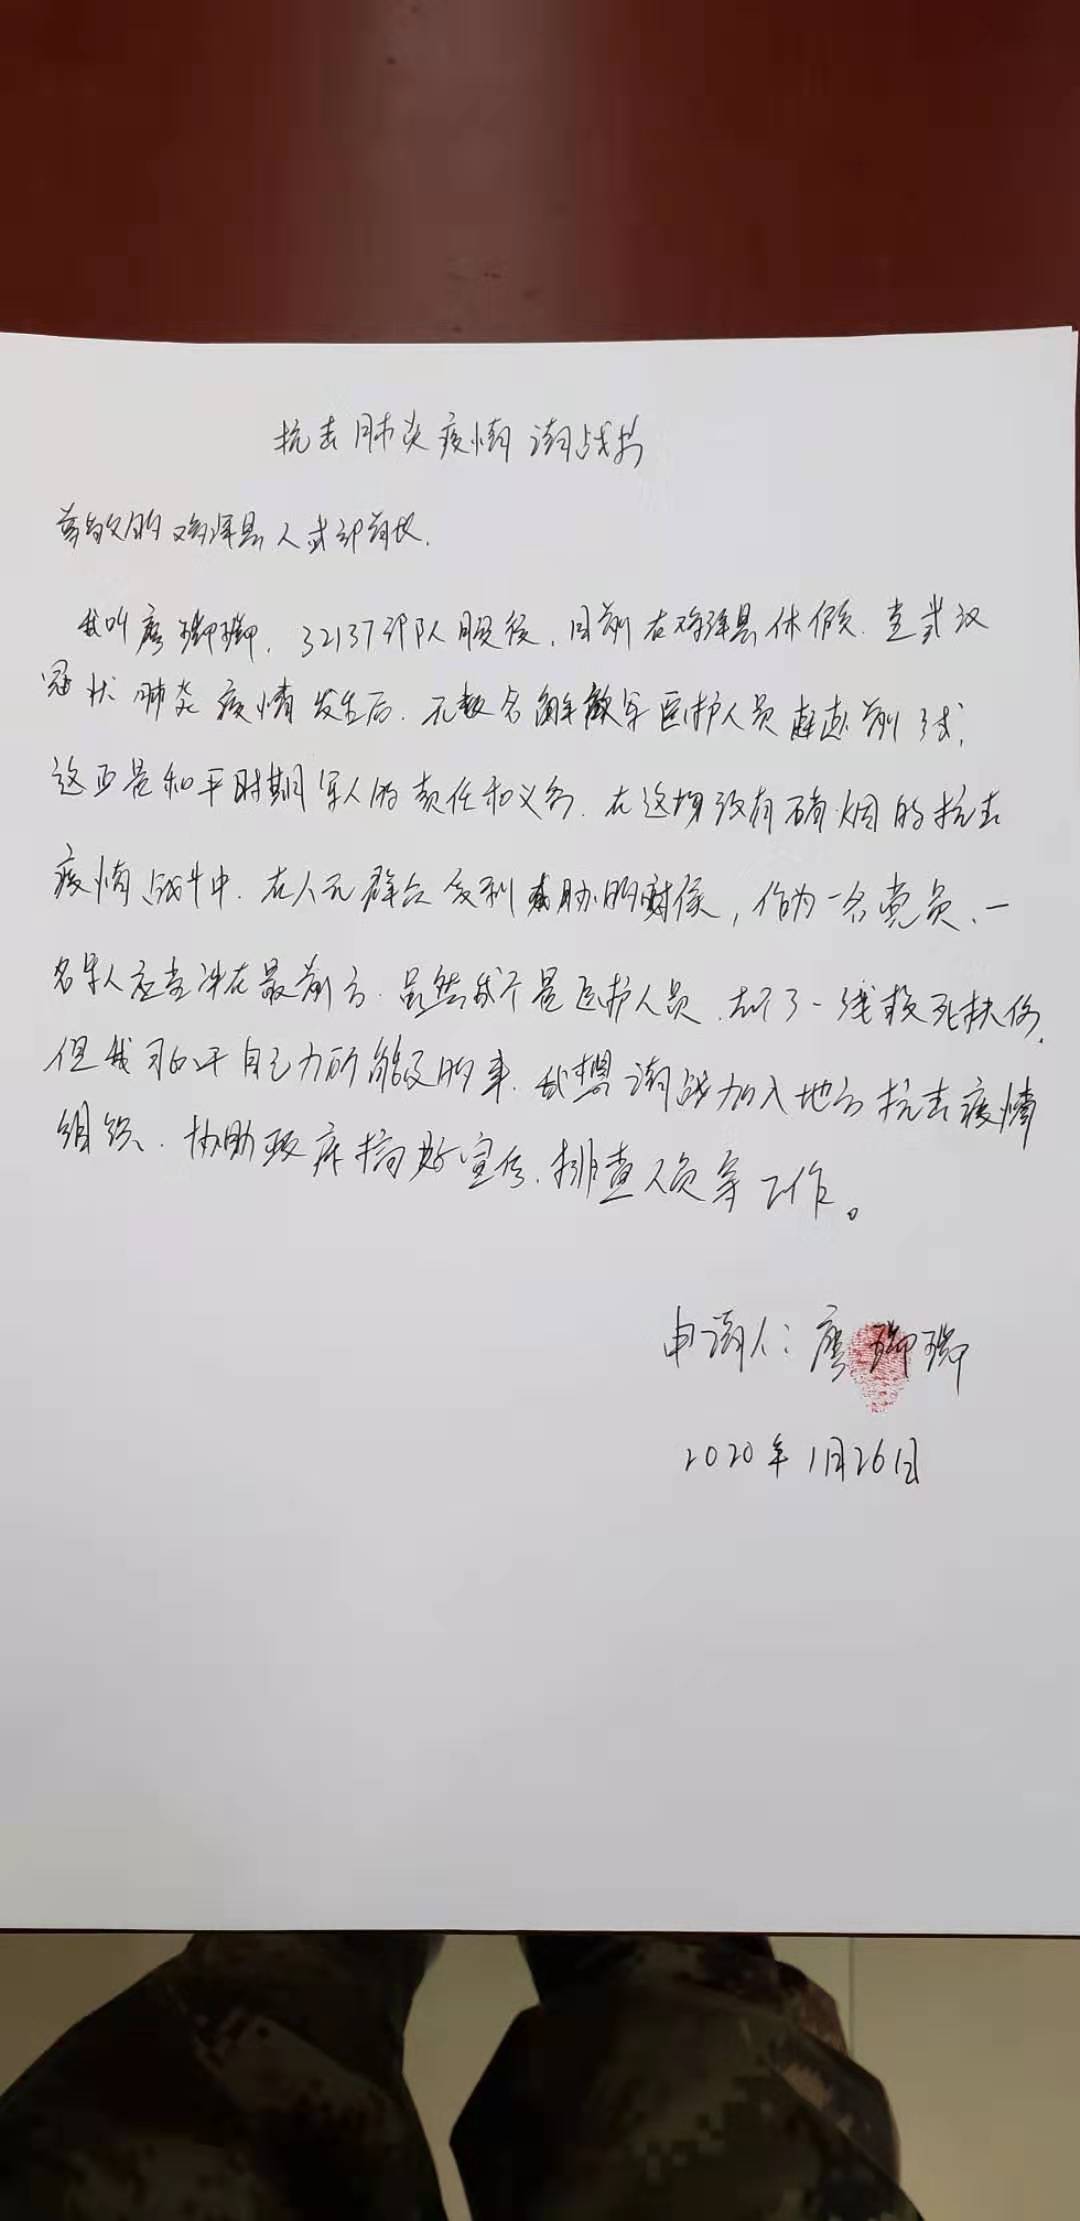 抗击肺炎疫情请战书
尊敬的鸡泽县人武部首长.
我叫廖卿卿,32137部队服役,目前在鸡泽县休假.在武汉
冠状肺炎疫情发生后.无数名解放军医护人员赶赴前线,
这正是和平时期军人的责任和义务.在这场没有硝烟的抗击
疫情战斗中.在人民群众受到威胁的时候,作为一名党员、一
名军人应当冲在最前方.虽然我不是医护人员.去不了一线救死扶伤,
但我可以干自己力所能及的事.我想请战加入地方抗击疫情
组织.协助政府搞好宣传、排查人员等工作。
申请人:廖
2020年1月26日